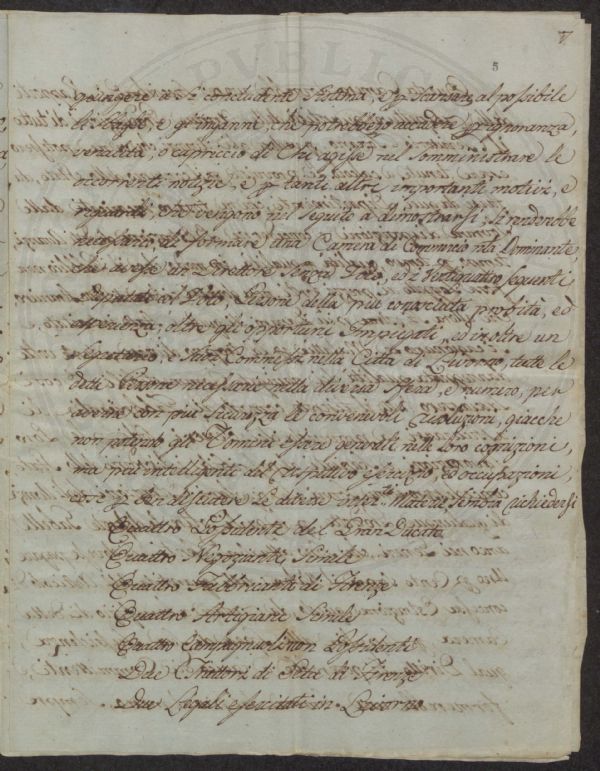 7
5
giungere a sì concludente sistema, e p scansare al possibile
gl'inganni, che potrebbero accadere p ignoranza,
venalità, o capriccio di chi agisse nel somministrare le
occorrenti notizie, e p tanti altri importanti motivi, e
riguardi, che vengono in seguito a dimostrarsi, si renderebbe
necessario di formare una Camera di Commercio nella Dominante,
che avesse un Direttore senza Voto, ed i Ventiquattro seguenti
Deputati col Voto, Persone della più conosciuta probità, ed
esperienza, oltre gli opportuni Impiegati, ed inoltre un
Segretario, e suoi Commessi nella Città di Livorno, tutte le
dati Persone necessarie nella diversa sfera, e numero, per
devenire con più sicurezza le convenevoli Risoluzioni, giacchè
non potendo gli Uomini essere generali nelle loro cognizioni,
ma più intelligenti del respettivo esercizio, ed occupazioni,
così p ben discutere le Materie sembra richiedersi
Quattro Possidenti del Gran Ducato
Quattro Negozianti Simile
Quattro Fabbricanti di Firenze
Quattro Artigiani Simile
Quattro Campagnuoli non Possidenti
Due Trattori di Seta di Firenze
e Due Legali esercitati in Livorno